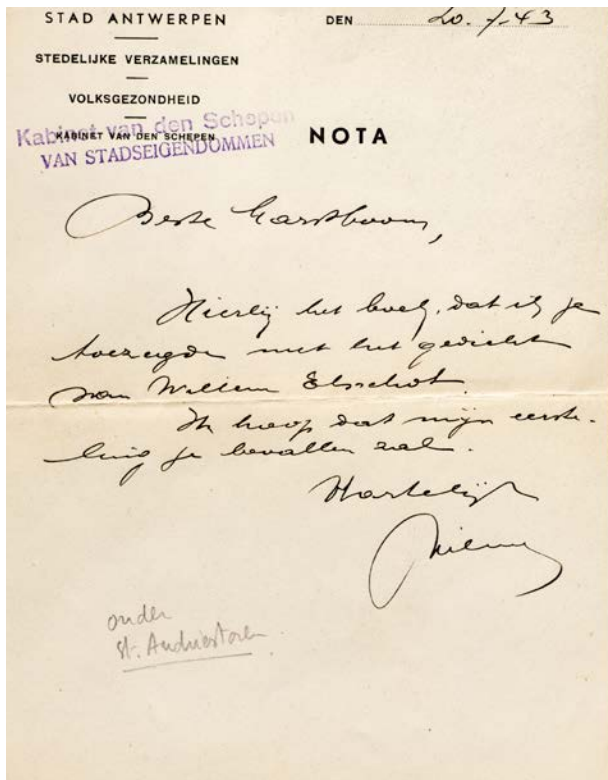 STAD ANTWERPEN
DEN 20.7.43
STEDELIJKE VERZAMELINGEN
VOLKSGEZONDHEID
KABINET VAN DEN SCHEPEN
Kabinet van den Schepen
VAN STADSEIGENDOMMEN
NOTA
Beste
Hierbij het boek, dat ik je
toezegde met het gedicht
van Willem Elsschot.
Ik hoop dat mijn eerste-
ling je bevallen zal.
Hartelijk
onder
St. Andriestoren